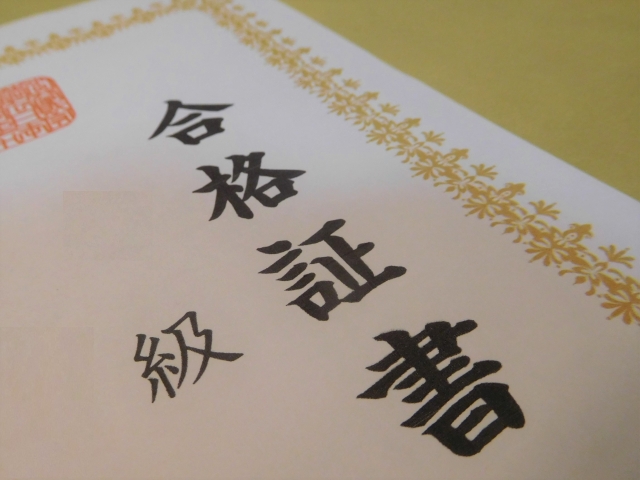 合格証書
級